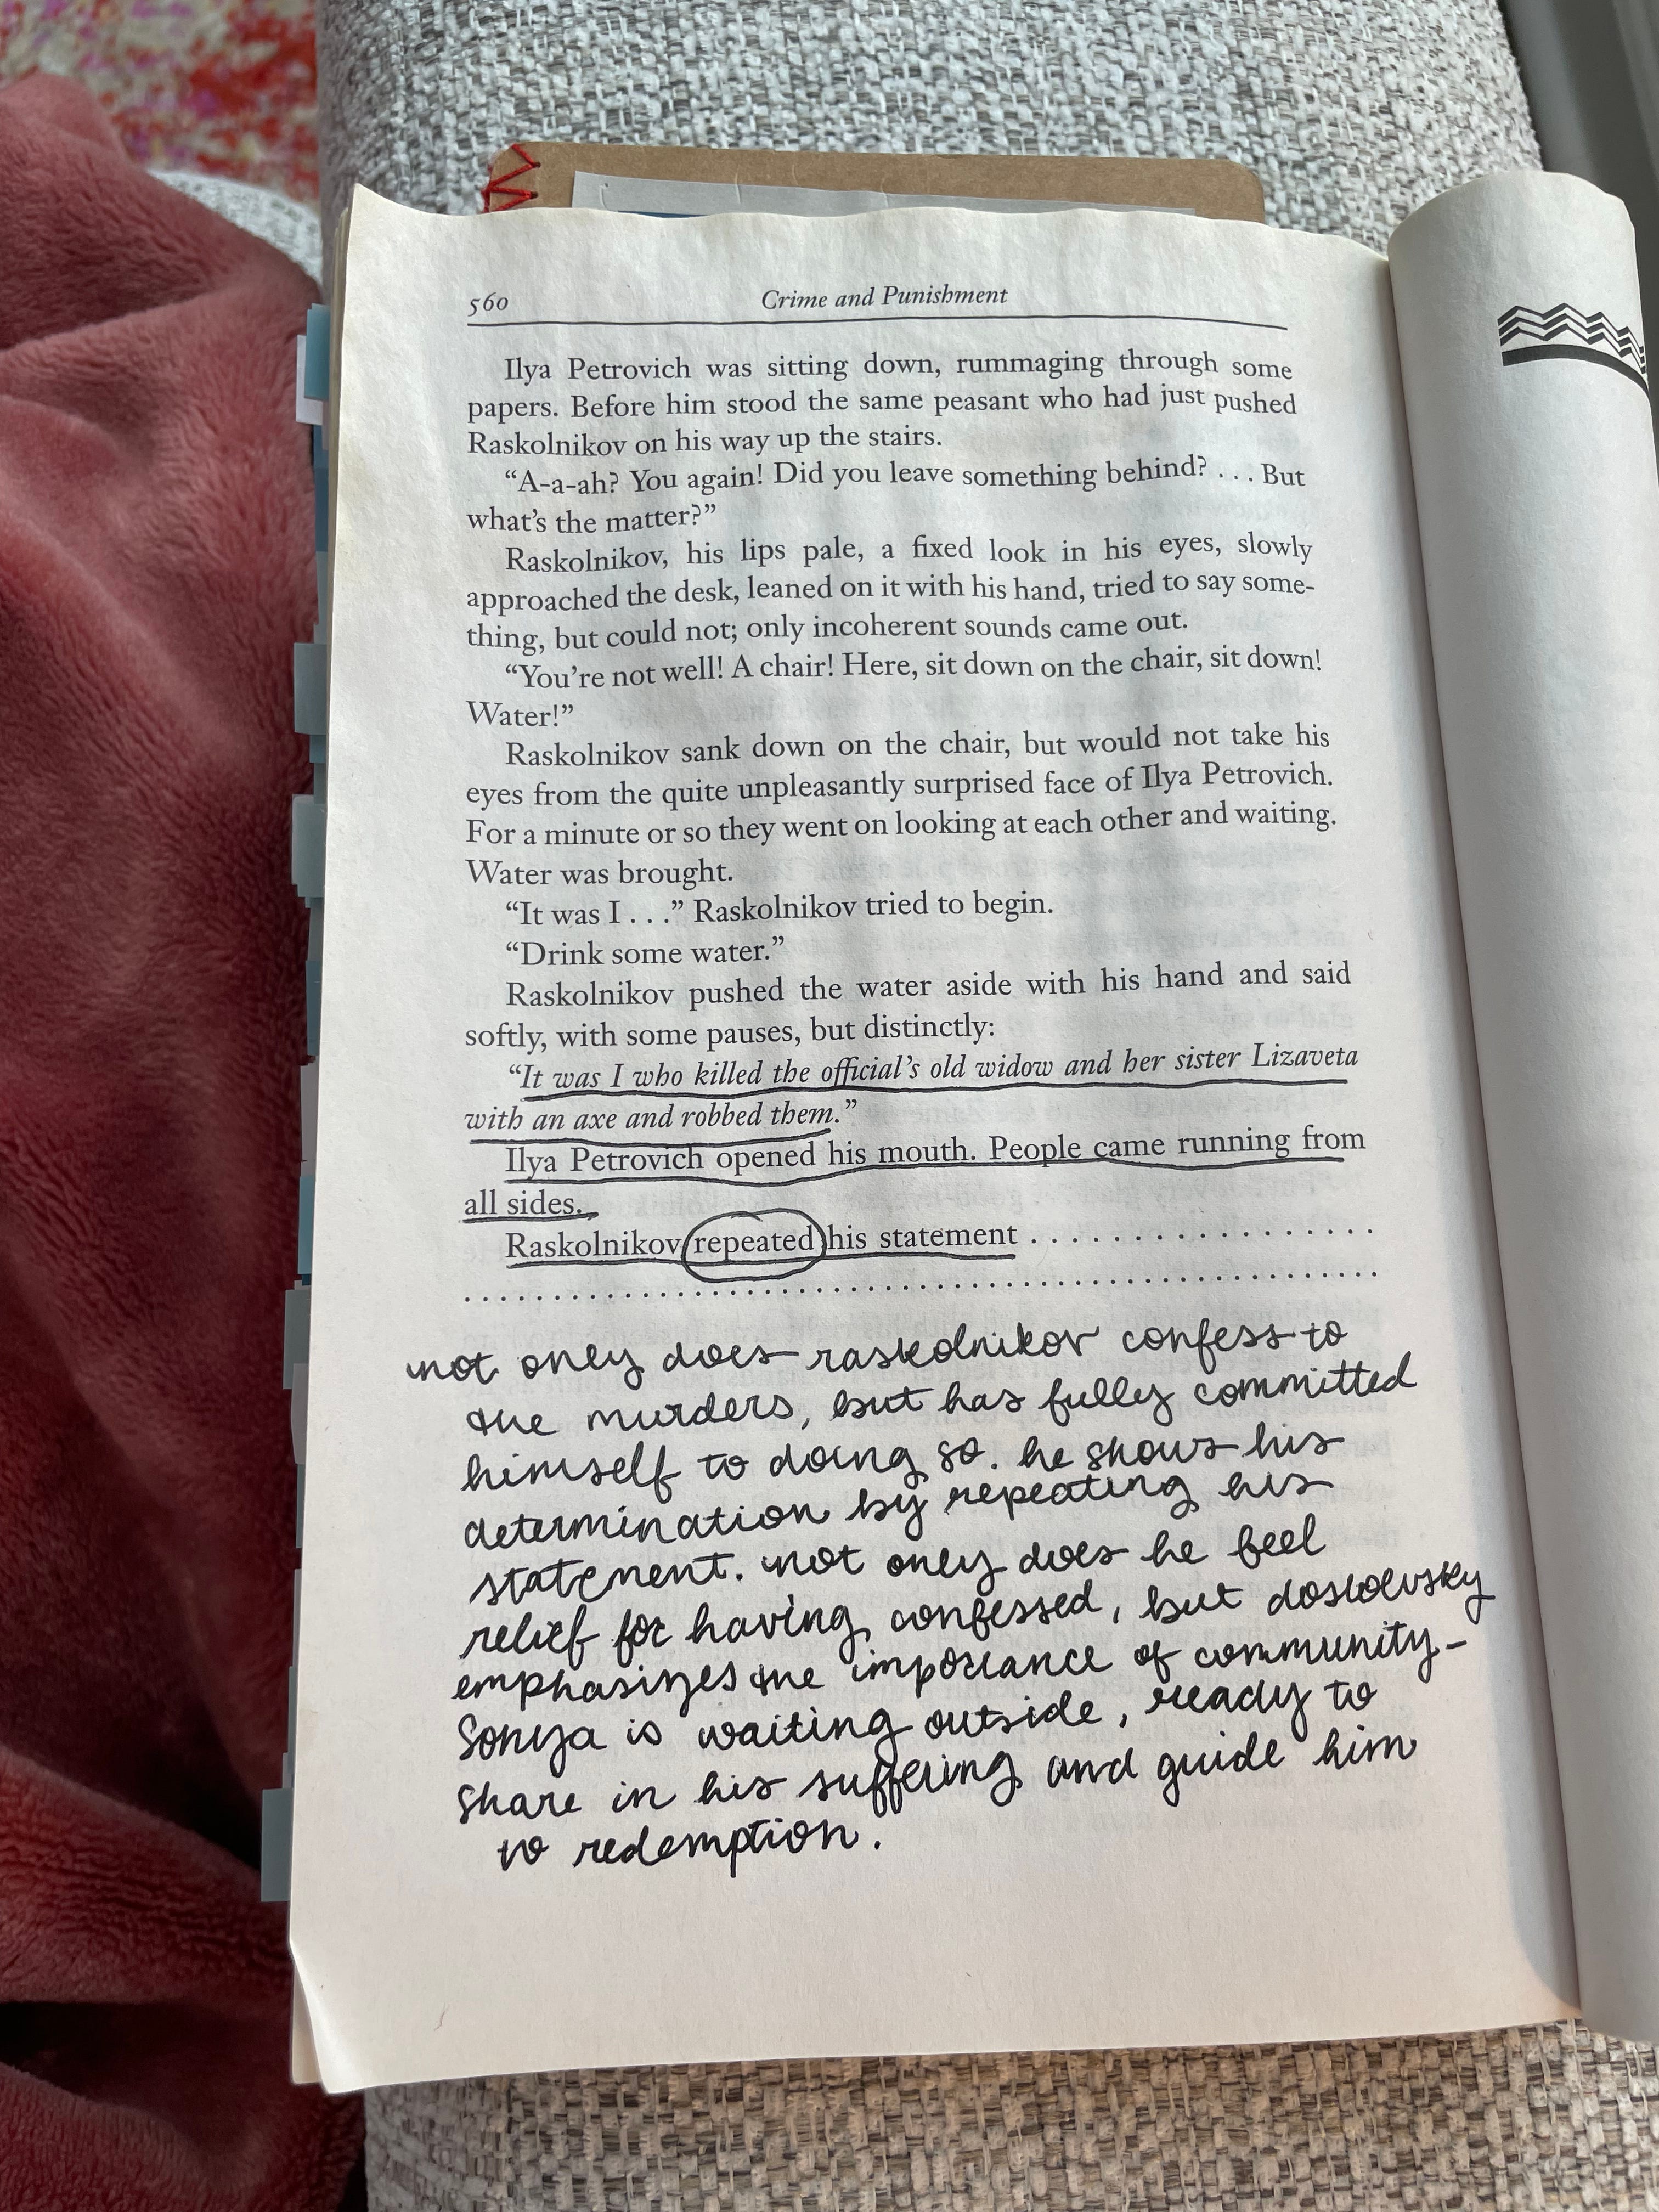 560 Crime and Punishment
Ilya Petrovich was sitting down, rummaging through some
papers. Before him stood the same peasant who had just pushed
Raskolnikov on his way up the stairs.
“A-a-ah? You again! Did you leave something behind? . . . But
what’s the matter?”
Raskolnikov, his lips pale, a fixed look in his eyes, slowly
approached the desk, leaned on it with his hand, tried to say some-
thing, but could not; only incoherent sounds came out.
“You’re not well! A chair! Here, sit down on the chair, sit down!
Water!”
Raskolnikov sank down on the chair, but would not take his
eyes from the quite unpleasantly surprised face of Ilya Petrovich.
For a minute or so they went on looking at each other and waiting.
Water was brought.
“It was I . . .” Raskolnikov tried to begin.
“Drink some water.”
Raskolnikov pushed the water aside with his hand and said
softly, with some pauses, but distinctly:
“It was I who killed the official’s old widow and her sister Lizaveta
with an axe and robbed them.”
Ilya Petrovich opened his mouth. People came running from
all sides.
Raskolnikov repeated his statement . . . . . . . . . . . . . . . . . .
. . . . . . . . . . . . . . . . . . . . . . . . . . . . . . . . . . . . . . . . . . . . . . . . .
not only does raskolnikov confess to
the murders, but has fully committed
himself to doing so. he shows his
determination by repeating his
statement. not only does he feel
relief for having confessed, but dostoevsky
emphasizes the importance of community-
Sonya is waiting outside, ready to
share in his suffering and guide him
to redemption.